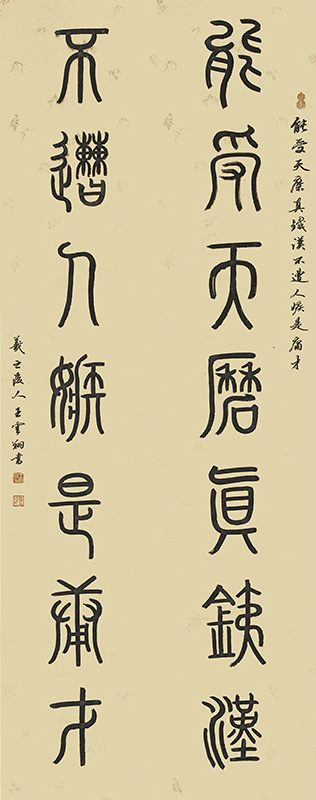 能受天磨真鐵漢不遭人嫉是庸才
能受天磨眞銕漢
不遭人嫉是庸才
羲之後人王雲翔書